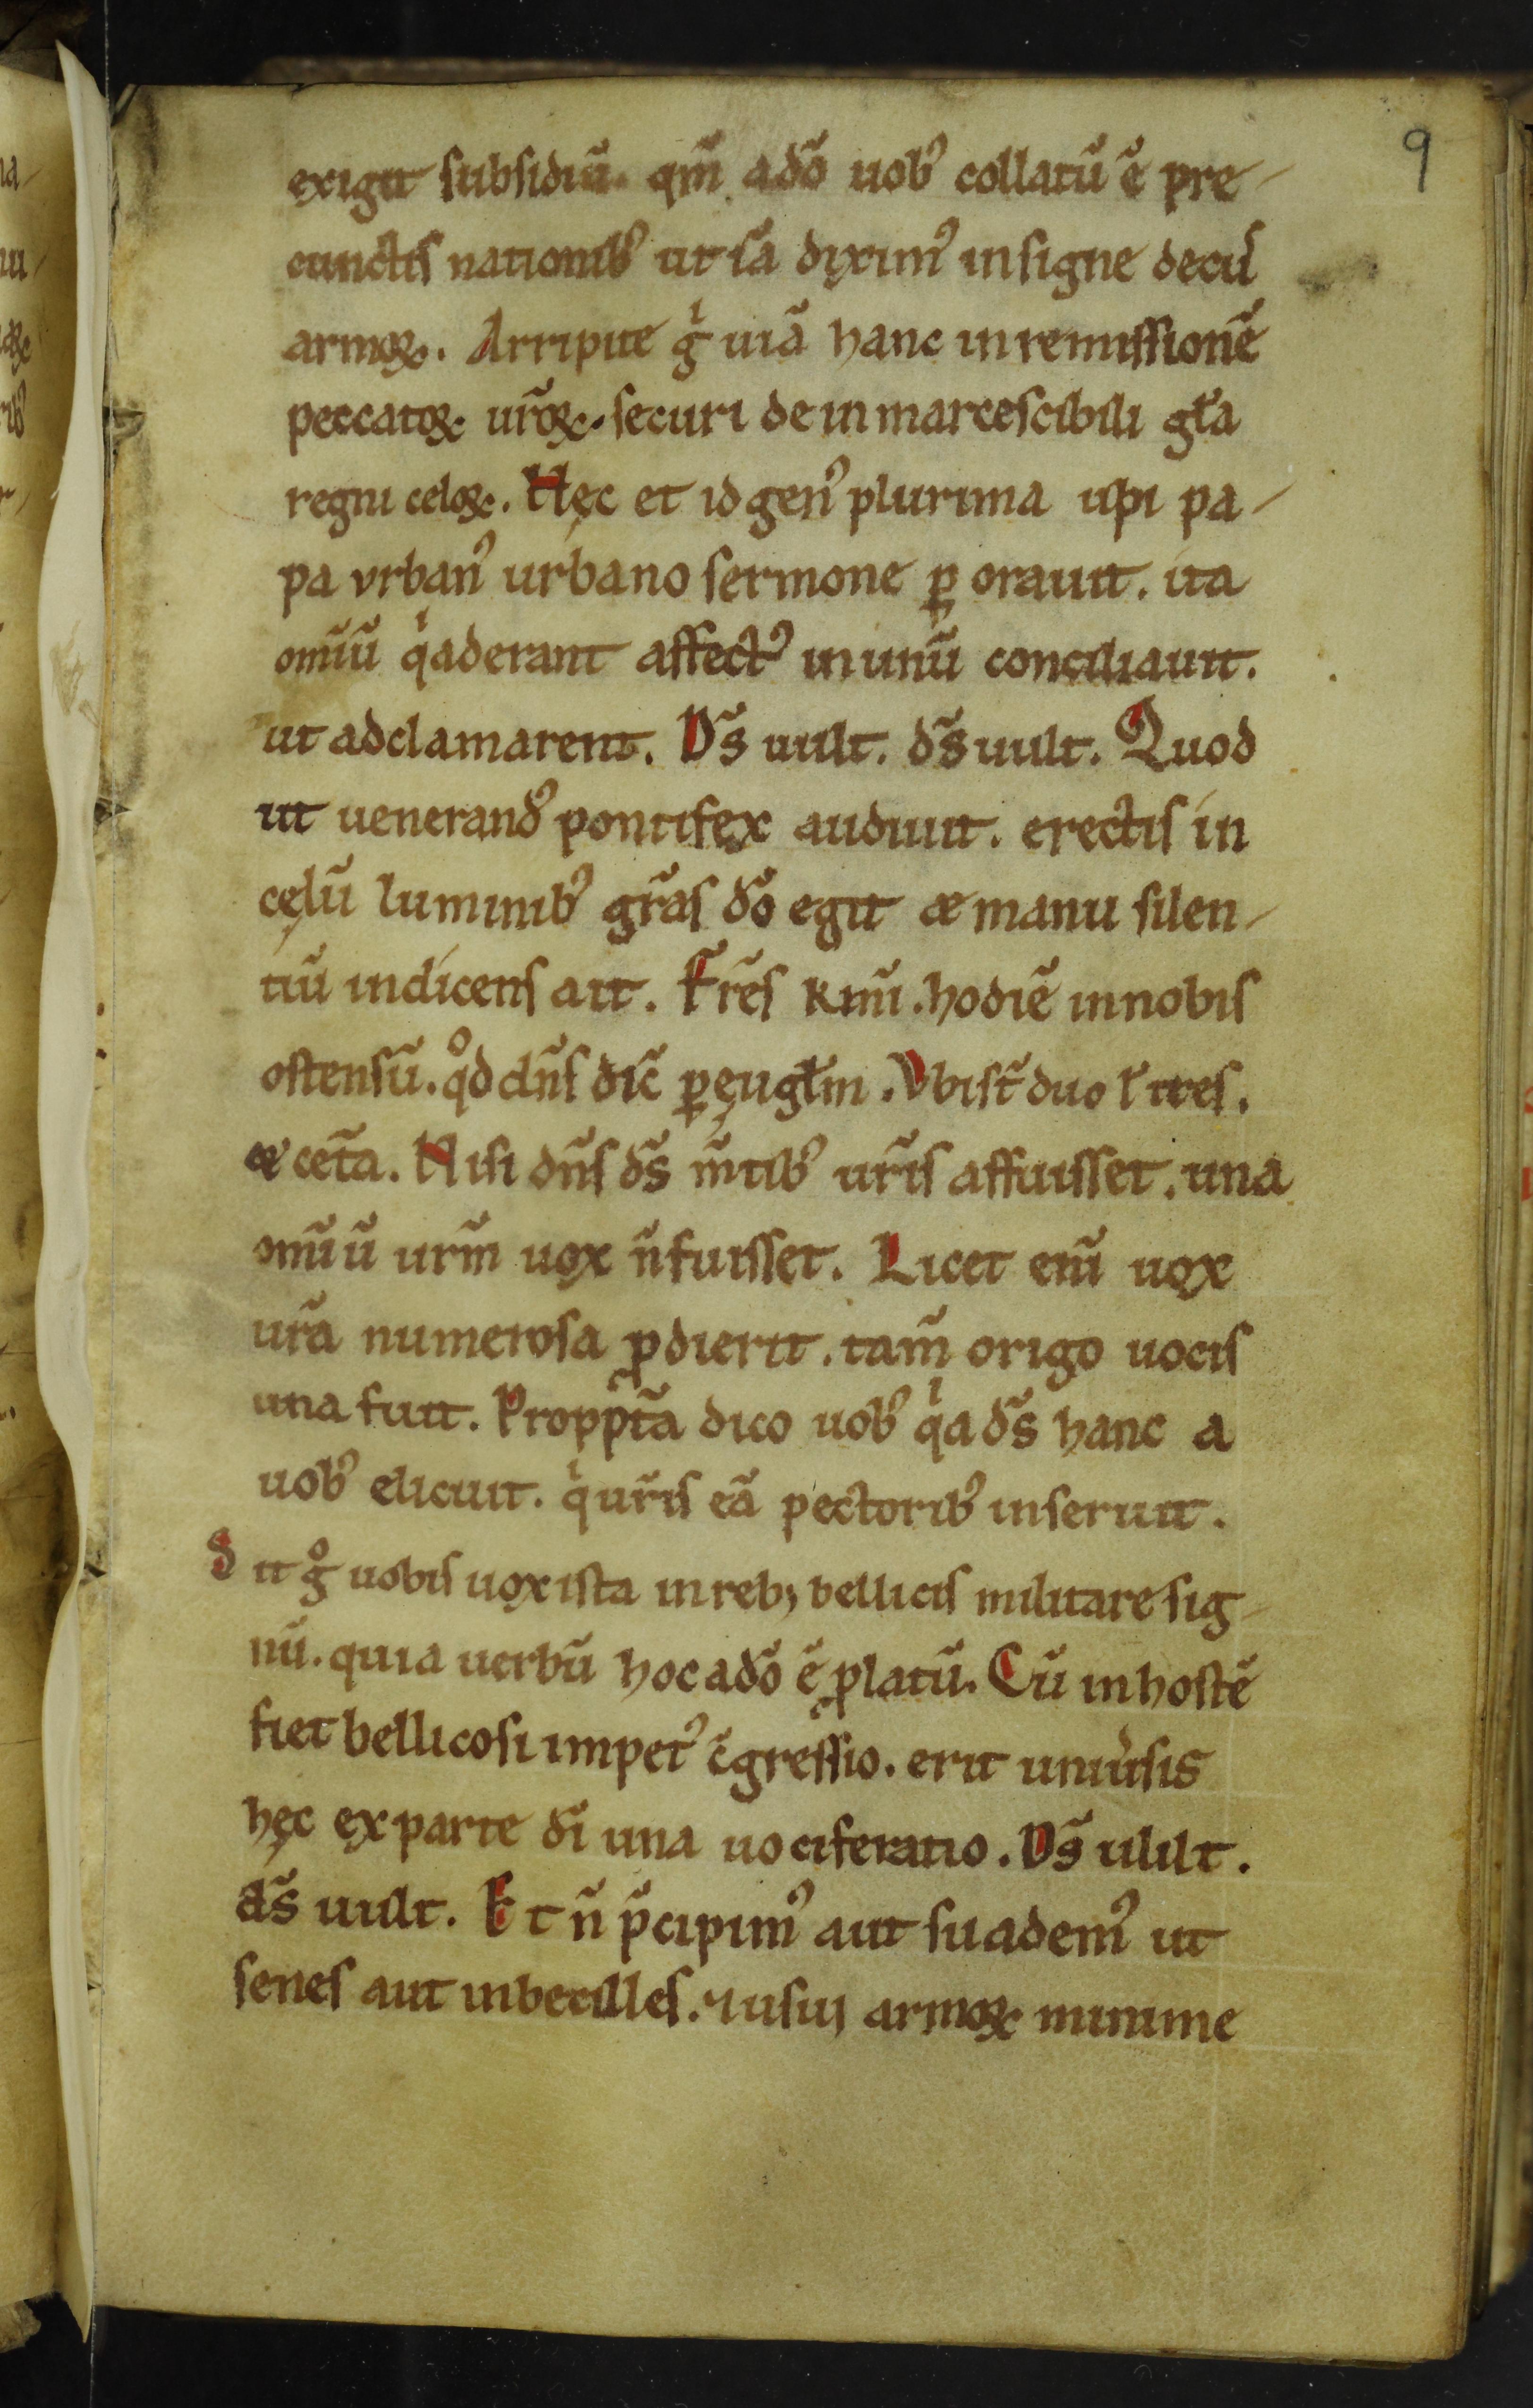 9
exigit subsidiū. qm̄ adō uobꝰ collatū ē pre-
cunctis nationibꝰ ut iā diximꝰ insigne decuſ
armoꝝ. Arripite gͥ uiā hanc inremissionē
peccatoꝝ ur̄oꝝ. securi de inmarcescibili gła
regni celoꝝ. Hęc et id genꝰ plurima ubi pa-
pa vrbanꝰ urbano sermone ꝑ orauit. ita
om̄iū qͥaderant affectꝰ inunū conciliauit.
ut adclamarent. D̄s uult. d̄s uult. Quod
ut uenerandꝰ pontifex audiuit. erectis in
cęlū luminibꝰ gr̄as dō egit & manu silen-
tiū indicens ait. Fr̄es km̄i. hodiē innobis
ostensū. qͦd dn̄s dic̄ ꝑęugłm. Vbist̄ duo ł tres.
& cet̄a. Nisi dn̄s d̄s m̄tibꝰ ur̄is affuisset. una
om̄iū urm̄ uox n̄fuisset. Licet enī uox
ur̄a numerosa ꝓdierit. tam̄ origo uocis
una fuit. Propp̄ta dico uobꝰ qͥa d̄s hanc a
uobꝰ elicuit. qͥur̄is eā pectoribꝰ inseruit.
Sit gͦ uobis uox ista in reb; bellicis militare sig-
nū. quia uerbū hoc adō ē ꝓlatū. Cū inhostē
fiet bellicosi impetꝰ c̄gressio. erit uniu̓sis
hęc ex parte dī una uociferatio. D̄s uult.
d̄s uult. Et n̄ p̄cipimꝰ aut suademꝰ ut
senes aut inbecilles. ⁊ usui armoꝝ minime